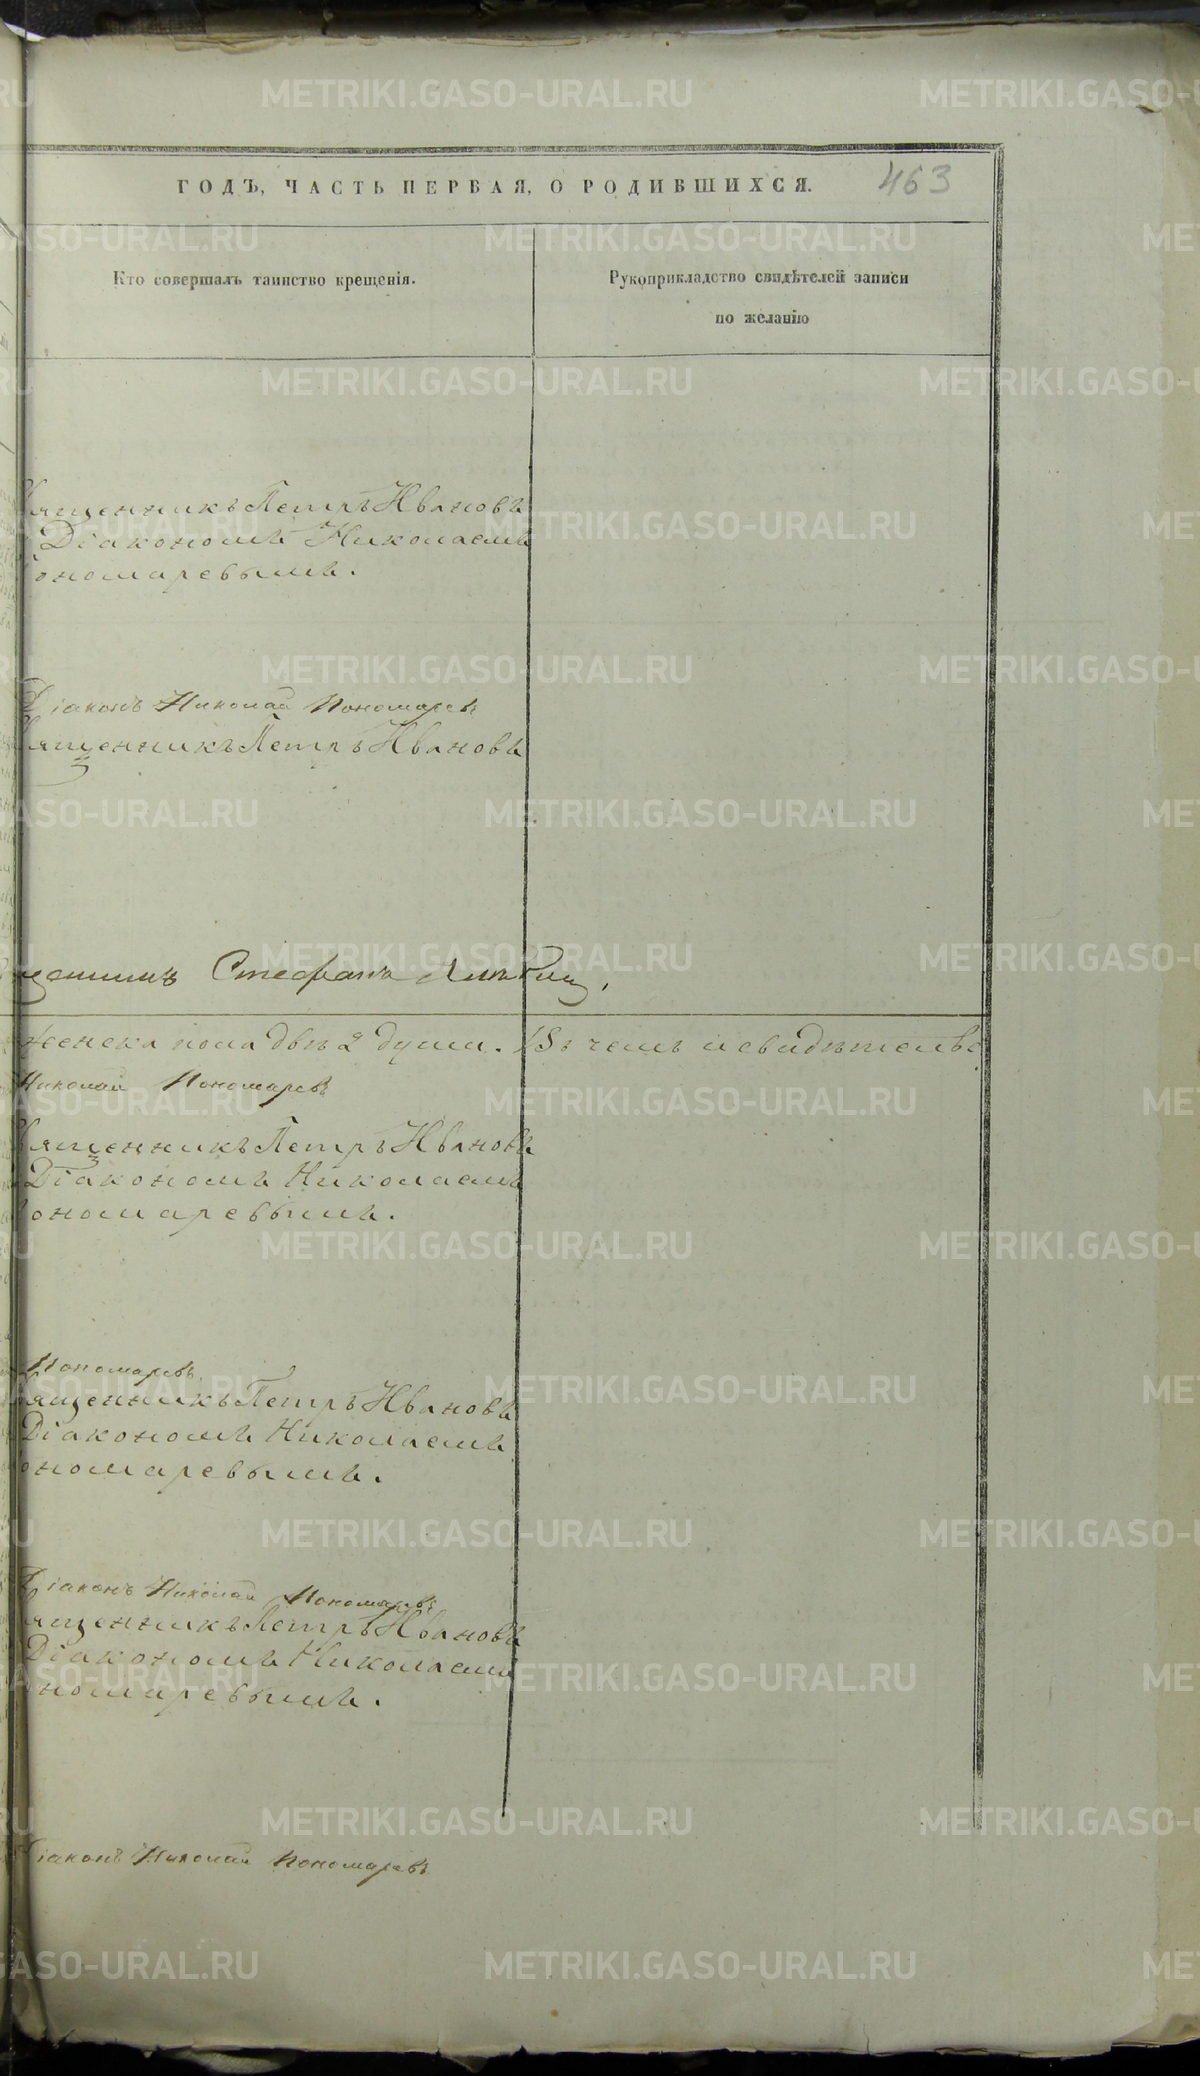 ГОДЪ, ЧАСТЬ ПЕРВАЯ, О РОДИВШИХСЯ. 463
Кто совершалъ таинство крещенія.
Рукоприкладство свидѣтелей записи
по желанію
ященникъ Петръ Ивановъ
Діакономъ Николаемъ
ономаревымъ.
Діаконъ Николай Пономаревъ
ященникъ Петръ Ивановъ
Стефанъ
женска пола двѣ 2 души. Въ чемъ и свидѣтельс
Николай Пономаревъ
ященникъ Петръ Ивановъ
Діакономъ Николаемъ
ономаревымъ.
Пономаревъ
ященникъ Петръ Ивановъ
Діакономъ Николаемъ
ономаревымъ.
Діаконъ Николай Пономаревъ
ященникъ Петръ Ивановъ
Діакономъ Николаемъ
номаревымъ.
Діаконъ Николай Пономаревъ
METRIKI.GASO-URAL.RU